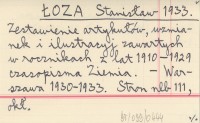 ŁOZA Stanisław 1933.
Zestawienie artykułów, wzmia-
nek i ilustracyj zawartych
w rocznikach z lat 1910-1929
czasopisma Ziemia. - War-
szawa 1930-1933. Stron nlb 111,
okł.